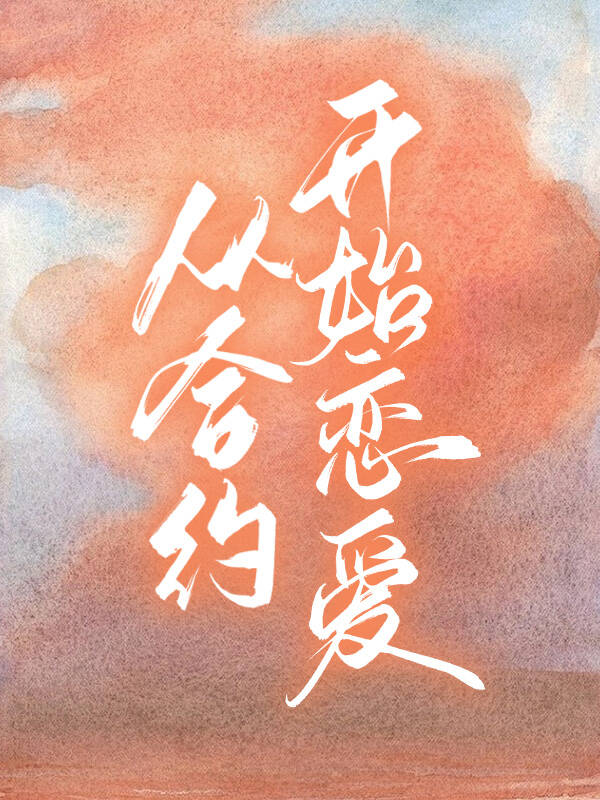 从合约
开始恋爱